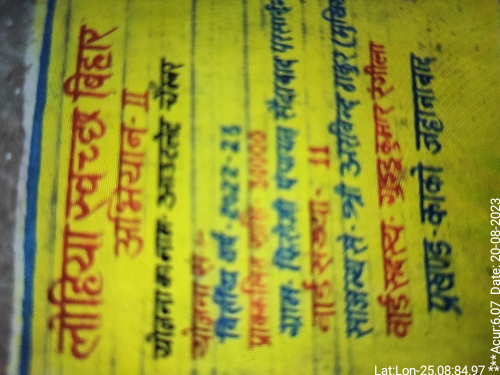 लोहिया स्वच्छ बिहार
अभियान-II
योजना का नाम- आउटलेट चेम्बर
योजना सं०-
वित्तीय वर्ष-2022-23
प्राक्कलित राशि
ग्राम- पंचायत
वार्ड संख्या:- 11
सौजन्य से- श्री अरविन्द ठाकुर (मुखिया
वार्ड सदस्य- गुड्डू कुमार रंगीला
प्रखण्ड-काको जहानाबाद
Lat:Lon-25.08:84.97
***Acur:6.07 Date: 20-08-2023